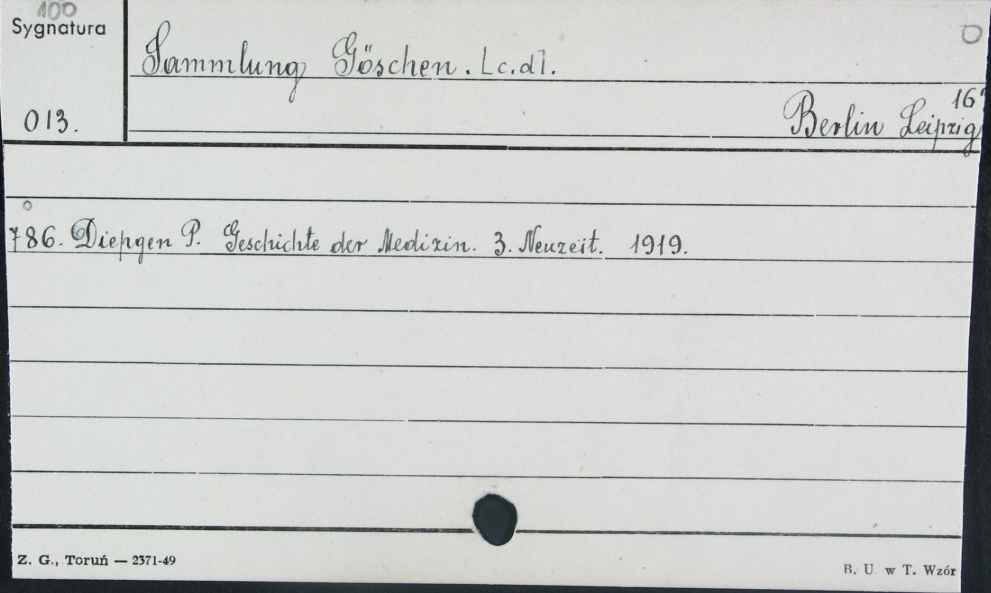 100
Sygnatura
013.
Sammlung Göschen. [c.d].
16°
Berlin Leipzig
786. Diepgen P. Geschichte der Medizin. 3. Neuzeit. 1919.
Z. G., Toruń — 2371-49
B. U. w T. Wzór